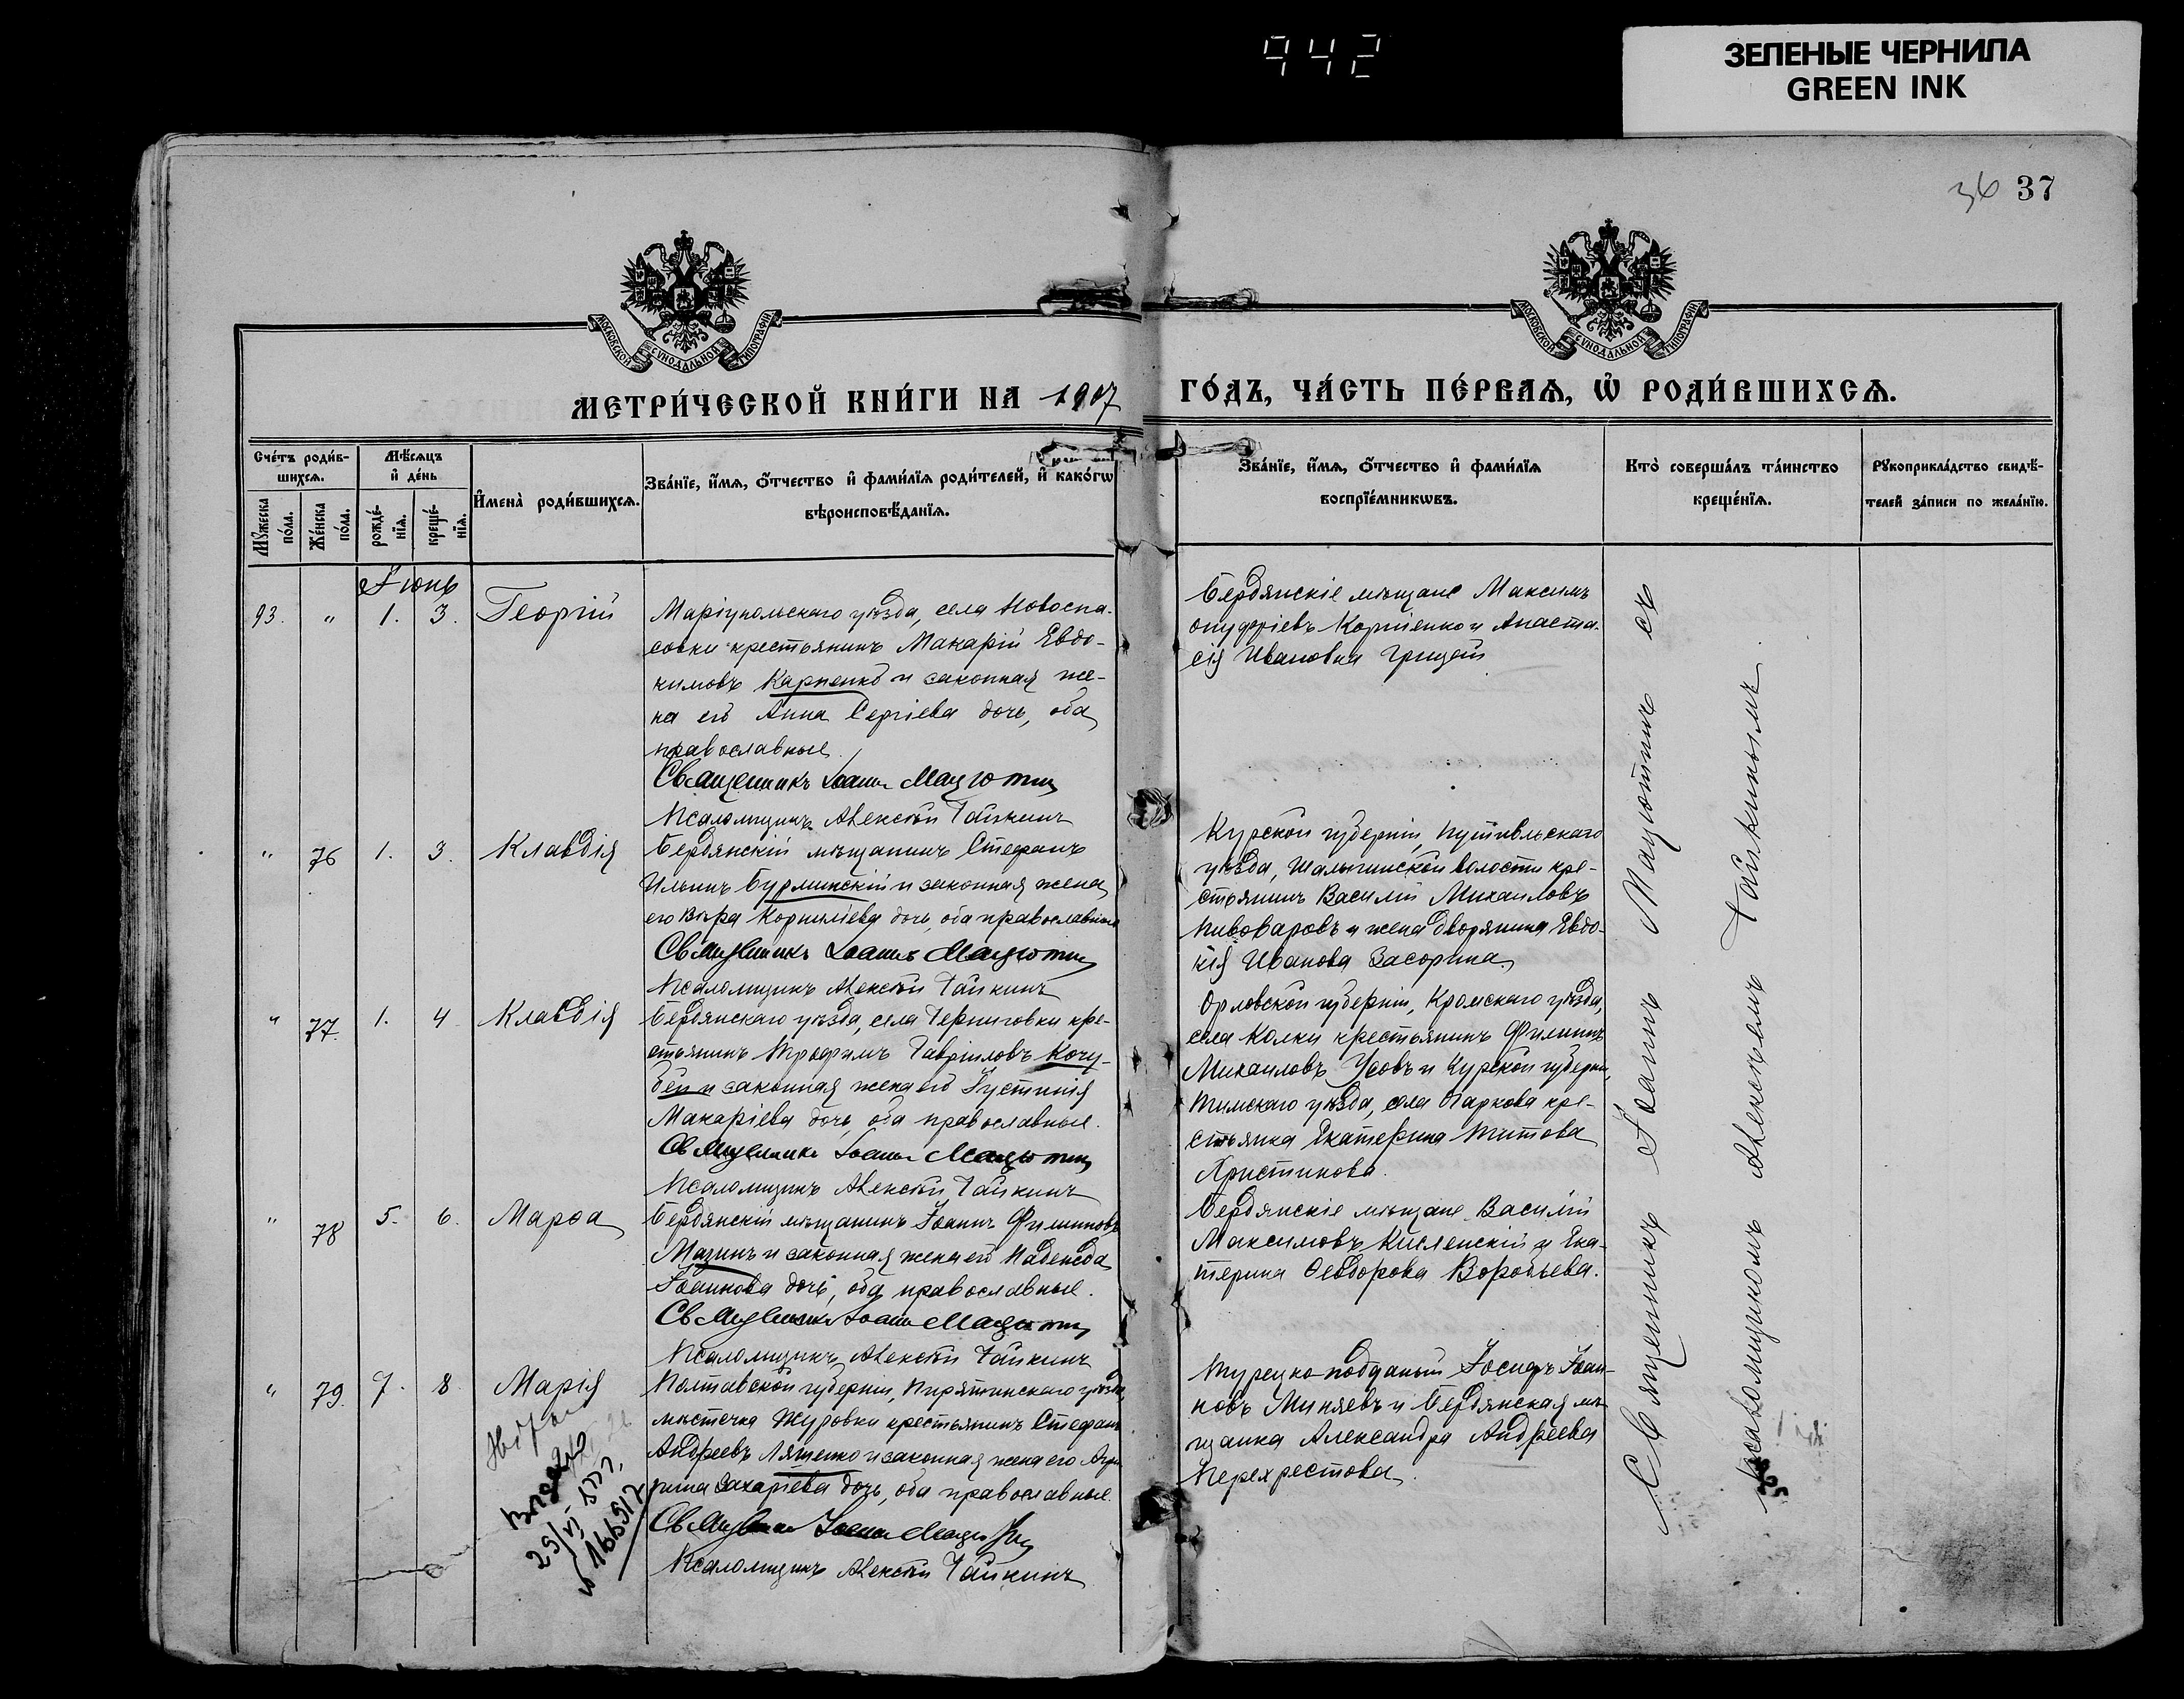 942
ЗЕЛЕНЫЕ ЧЕРНИЛА
GREEN INK
36 37
МОСКОВСКОЙ СѴНОДАЛЬНОЙ ТИПОГРАФІИ
МОСКОВСКОЙ СѴНОДАЛЬНОЙ ТИПОГРАФІИ
МЕТРИ́ЧЕСКОЙ КНИ́ГИ НА 1907
ГО́ДЪ, ЧА́СТЬ ПЕ́РВАѦ, Ѽ РОДИ́ВШИХСѦ.
Сче́тъ роди́в-
шихсѧ.
Мꙋ́жеска по́ла.
Же́нска по́ла.
Мѣ́сѧцъ
и҆ де́нь
рожде́-
нїѧ.
креще́-
нїѧ.
И҆мена̀ роди́вшихсѧ.
Зва́нїе, и҆́мѧ, о҆́тчество и҆ фами́лїѧ роди́телей, и҆ како́гѡ
вѣроисповѣ́данїѧ.
Зва́нїе, и҆́мѧ, о҆́тчество и҆ фами́лїѧ
воспрїе́мникѡвъ.
Кто̀ соверша́лъ та́инство
креще́нїѧ.
Рꙋкоприкла́дство свидѣ́-
телей за́писи по жела́нїю.
Іюнь
93. " 1. 3. Георгій
Маріупольскаго уѣзда, села Новоспа-
совки крестьянинъ Макарій Евдо-
кимовъ Карпенко и законная же-
на его Анна Сергіева дочь, оба
православные.
Священникъ Іоаннъ Мацютин
Псаломщикъ Алексѣй Тайкинъ
Бердянскіе мѣщане Максимъ
Онуфріевъ Корніенко и Анаста-
сія Ивановна Грицай
" 76 1. 3. Клавдія
Бердянскій мѣщанинъ Стефанъ
Ильинъ Бурминскій и законная жена
его Вѣра Корниліева дочь, оба православные
Священникъ Іоаннъ Мацютин
Псаломщикъ Алексѣй Тайкинъ
Курской губерніи, Путивльскаго
уѣзда, Шалыгинской волости кре-
стьянинъ Василій Михаиловъ
Пивоваровъ и жена дворянина Евдо-
кія Иванова Засорина.
" 77. 1. 4 Клавдія
Бердянскаго уѣзда, села Черниговки кре-
стьянинъ Трофимъ Гавріиловъ Кочу-
бей и законная жена его Іустинія
Макаріева дочь, оба православные.
Священникъ Іоаннъ Мацютин
Псаломщикъ Алексѣй Тайкинъ
Орловской губерніи, Кромскаго уѣзда,
села Колки крестьянинъ Филиппъ
Михаиловъ Усовъ и Курской губерніи,
Тимскаго уѣзда, села Огаркова кре-
стьянка Екатерина Титова
Христинова.
" 78 5. 6. Марѳа
Бердянскій мѣщанинъ Іоаннъ Филипповъ
Мазинъ и законная жена его Надежда
Іоаннова дочь, оба православные.
Священникъ Іоаннъ Мацютин
Псаломщикъ Алексѣй Тайкинъ
Бердянскіе мѣщане Василій
Максимовъ Кисленскій и Ека-
терина Ѳеодорова Воробьева.
" 79. 7. 8 Марія
Полтавской губерніи, Пирятинскаго уѣзда,
мѣстечка Журовки крестьянинъ Стефанъ
Андреевъ Ляшенко и законная жена его Ири-
рина Захаріева дочь, оба православные.
Священникъ Іоаннъ Мацютин
Псаломщикъ Алексѣй Тайкинъ
Турецко-подданый Іосифъ Іоан-
новъ Миняевъ и Бердянская мѣ-
щанка Александра Андреева
Перехрестова.
29/VI
166917
Священникъ Іоаннъ Мацютинъ съ
псаломщикомъ Алексѣемъ Тайкинымъ.